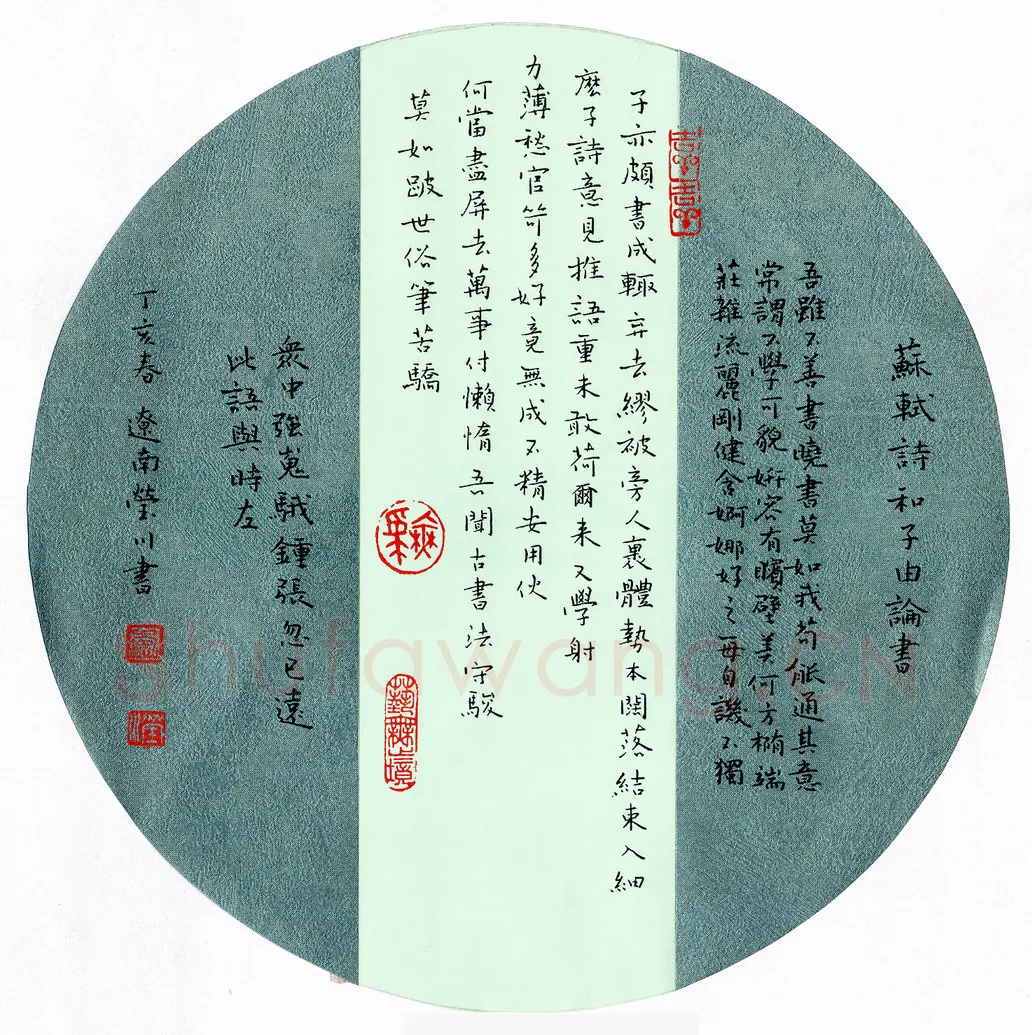 蘇軾詩和子由論書
吾雖不善書曉書莫如我苟能通其意
常謂不學可貌妍容有矉璧美何方橢端
莊雜流麗剛健含婀娜好之每自譏不獨
子亦頗書成輒弃去繆被旁人裹體勢本闊落結束入細
麽子詩意見推語重未敢荷爾来又學射
力薄愁官笴多好竟無成不精安用伙
何當盡屏去萬事付懶惰吾聞古書法守駿
莫如跛世俗筆苦驕
衆中強嵬騀鍾張忽已遠
此語與時左
丁亥春 遼南瑩川書
Shufawang.CN